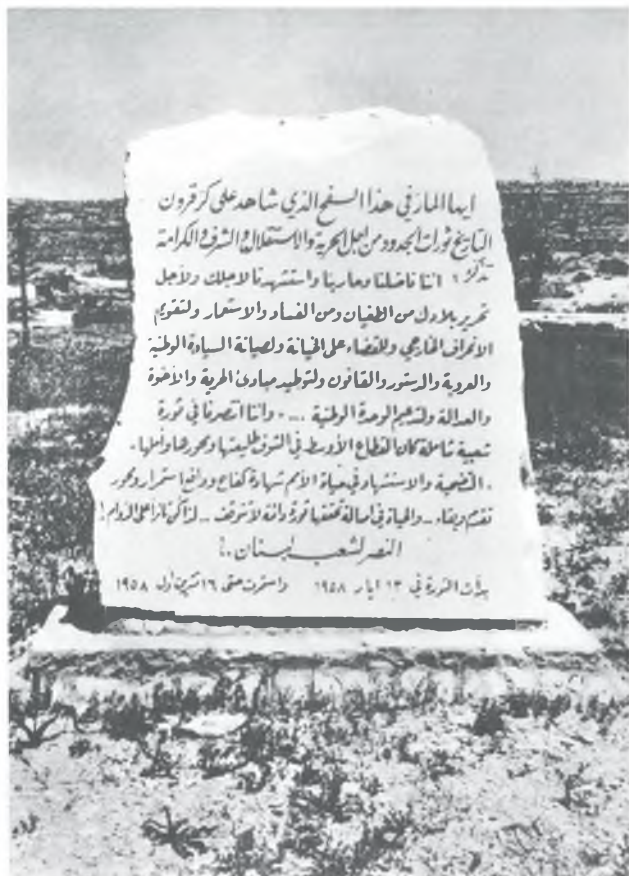 ايها المار في هذا السفح الذي شاهد على كر قرون
التاريخ ثورات الجدود من اجل الحرية والاستقلال والشرف والكرامة
تذكر ! اننا ناضلنا وحاربنا واستشهدنا لاجلك ولاجل
تحرير بلادك من الطغيان ومن الفساد والاستعمار ولتقويم
الانحراف الخارجي وللقضاء على الخيانة ولصيانة السيادة الوطنية
والعروبة والدستور والقانون ولتوطيد مبادئ الحرية والأخوة
والعدالة ولتدعيم الوحدة الوطنية ... وأننا انتصرنا في ثورة
شعبية شاملة كان القطاع الأوسط في الشوف طليعتها ومحورها وأملها .
. التضحية والاستشهاد في حياة الأمم شهادة كفاح ودافع استمرار ومحور
تقدم وبقاء .. والحياة في اصالة ثورة دائمة لا تتوقف .. على الدوام !
النصر لشعب لبنان .!
بدأت الثورة في ١٣ ايار ١٩٥٨ واستمرت حتى ١٦ تشرين اول ١٩٥٨